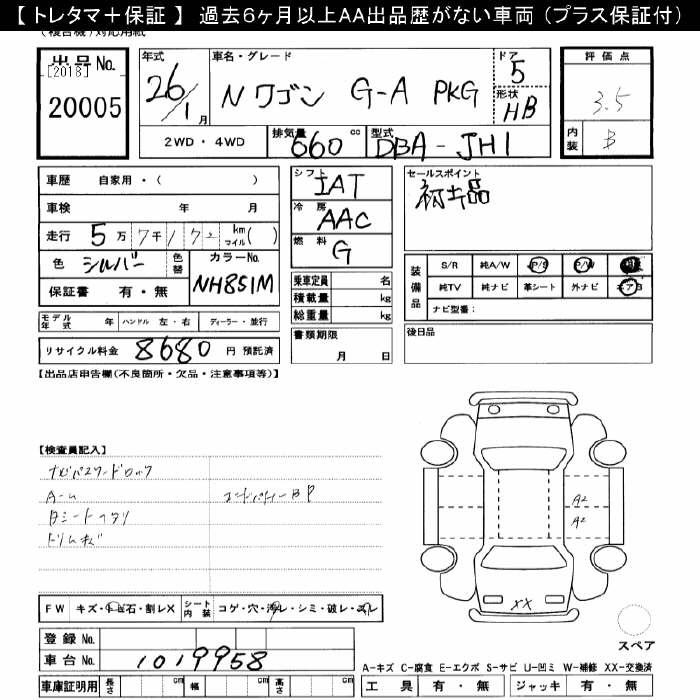 【 トレタマ＋保証 】 過去6ヶ月以上AA出品歴がない車両（プラス保証付）
(複合機)対応用紙
出品No.
[2018]
20005
年式
26/1月
車名・グレード
Nワゴン G-A PKG
ドア
5
形状
HB
評価点
3.5
内装
B
2WD・4WD
排気量
660 cc
型式
DBA-JH1
車歴 自家用・( )
車検 年 月
走行 5万 7千 1 7 2 km マイル( )
色 シルバー
色替
カラーNo.
NH851M
保証書 有・無
シフト
IAT
冷房
AAC
燃料
G
乗車定員 名
積載量 kg
総重量 kg
セールスポイント
初出品
装備品
S/R 純A/W P/S P/W
純TV 純ナビ 革シート 外ナビ エアB
ナビ型番：
モデル年式 年 ハンドル 左・右 ディーラー・並行
リサイクル料金 8680 円 預託済
書類期限
月 日
後日品
【出品店申告欄(不良箇所・欠品・注意事項等)】
【検査員記入】
ナビパスワードロック
A-ム
コートバティーBP
A2
A2
XX
FW キズ・トビ石・割レX
シート内装 コゲ・穴・汚レ・シミ・破レ・スレ
登録No.
車台No. 1019958
スペア
A-キズ C-腐食 E-エクボ S-サビ U-凹ミ W-補修 XX-交換済
車庫証明用 長さ cm 幅 cm 高さ cm
工具 有・無 ジャッキ 有・無